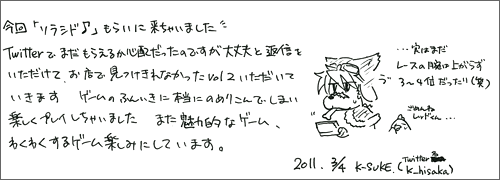 今回「ソラシド♪」もらいに来ちゃいました
Twitterで まだもらえるか心配だったのですが大丈夫と返信を
いただけて、お店で見つけきれなかったvol2いただいて
いきます ゲームのふんいきに本当にのめりこんでしまい
楽しくプレイしちゃいました また魅力的なゲーム、
わくわくするゲーム楽しみにしています。
…実はまだ
レースの腕は上がらず
3〜4位だったり(笑)
ごめんね
レッドくん…
2011. 3/4 K-SUKE.(Twitter
K_hisaka)